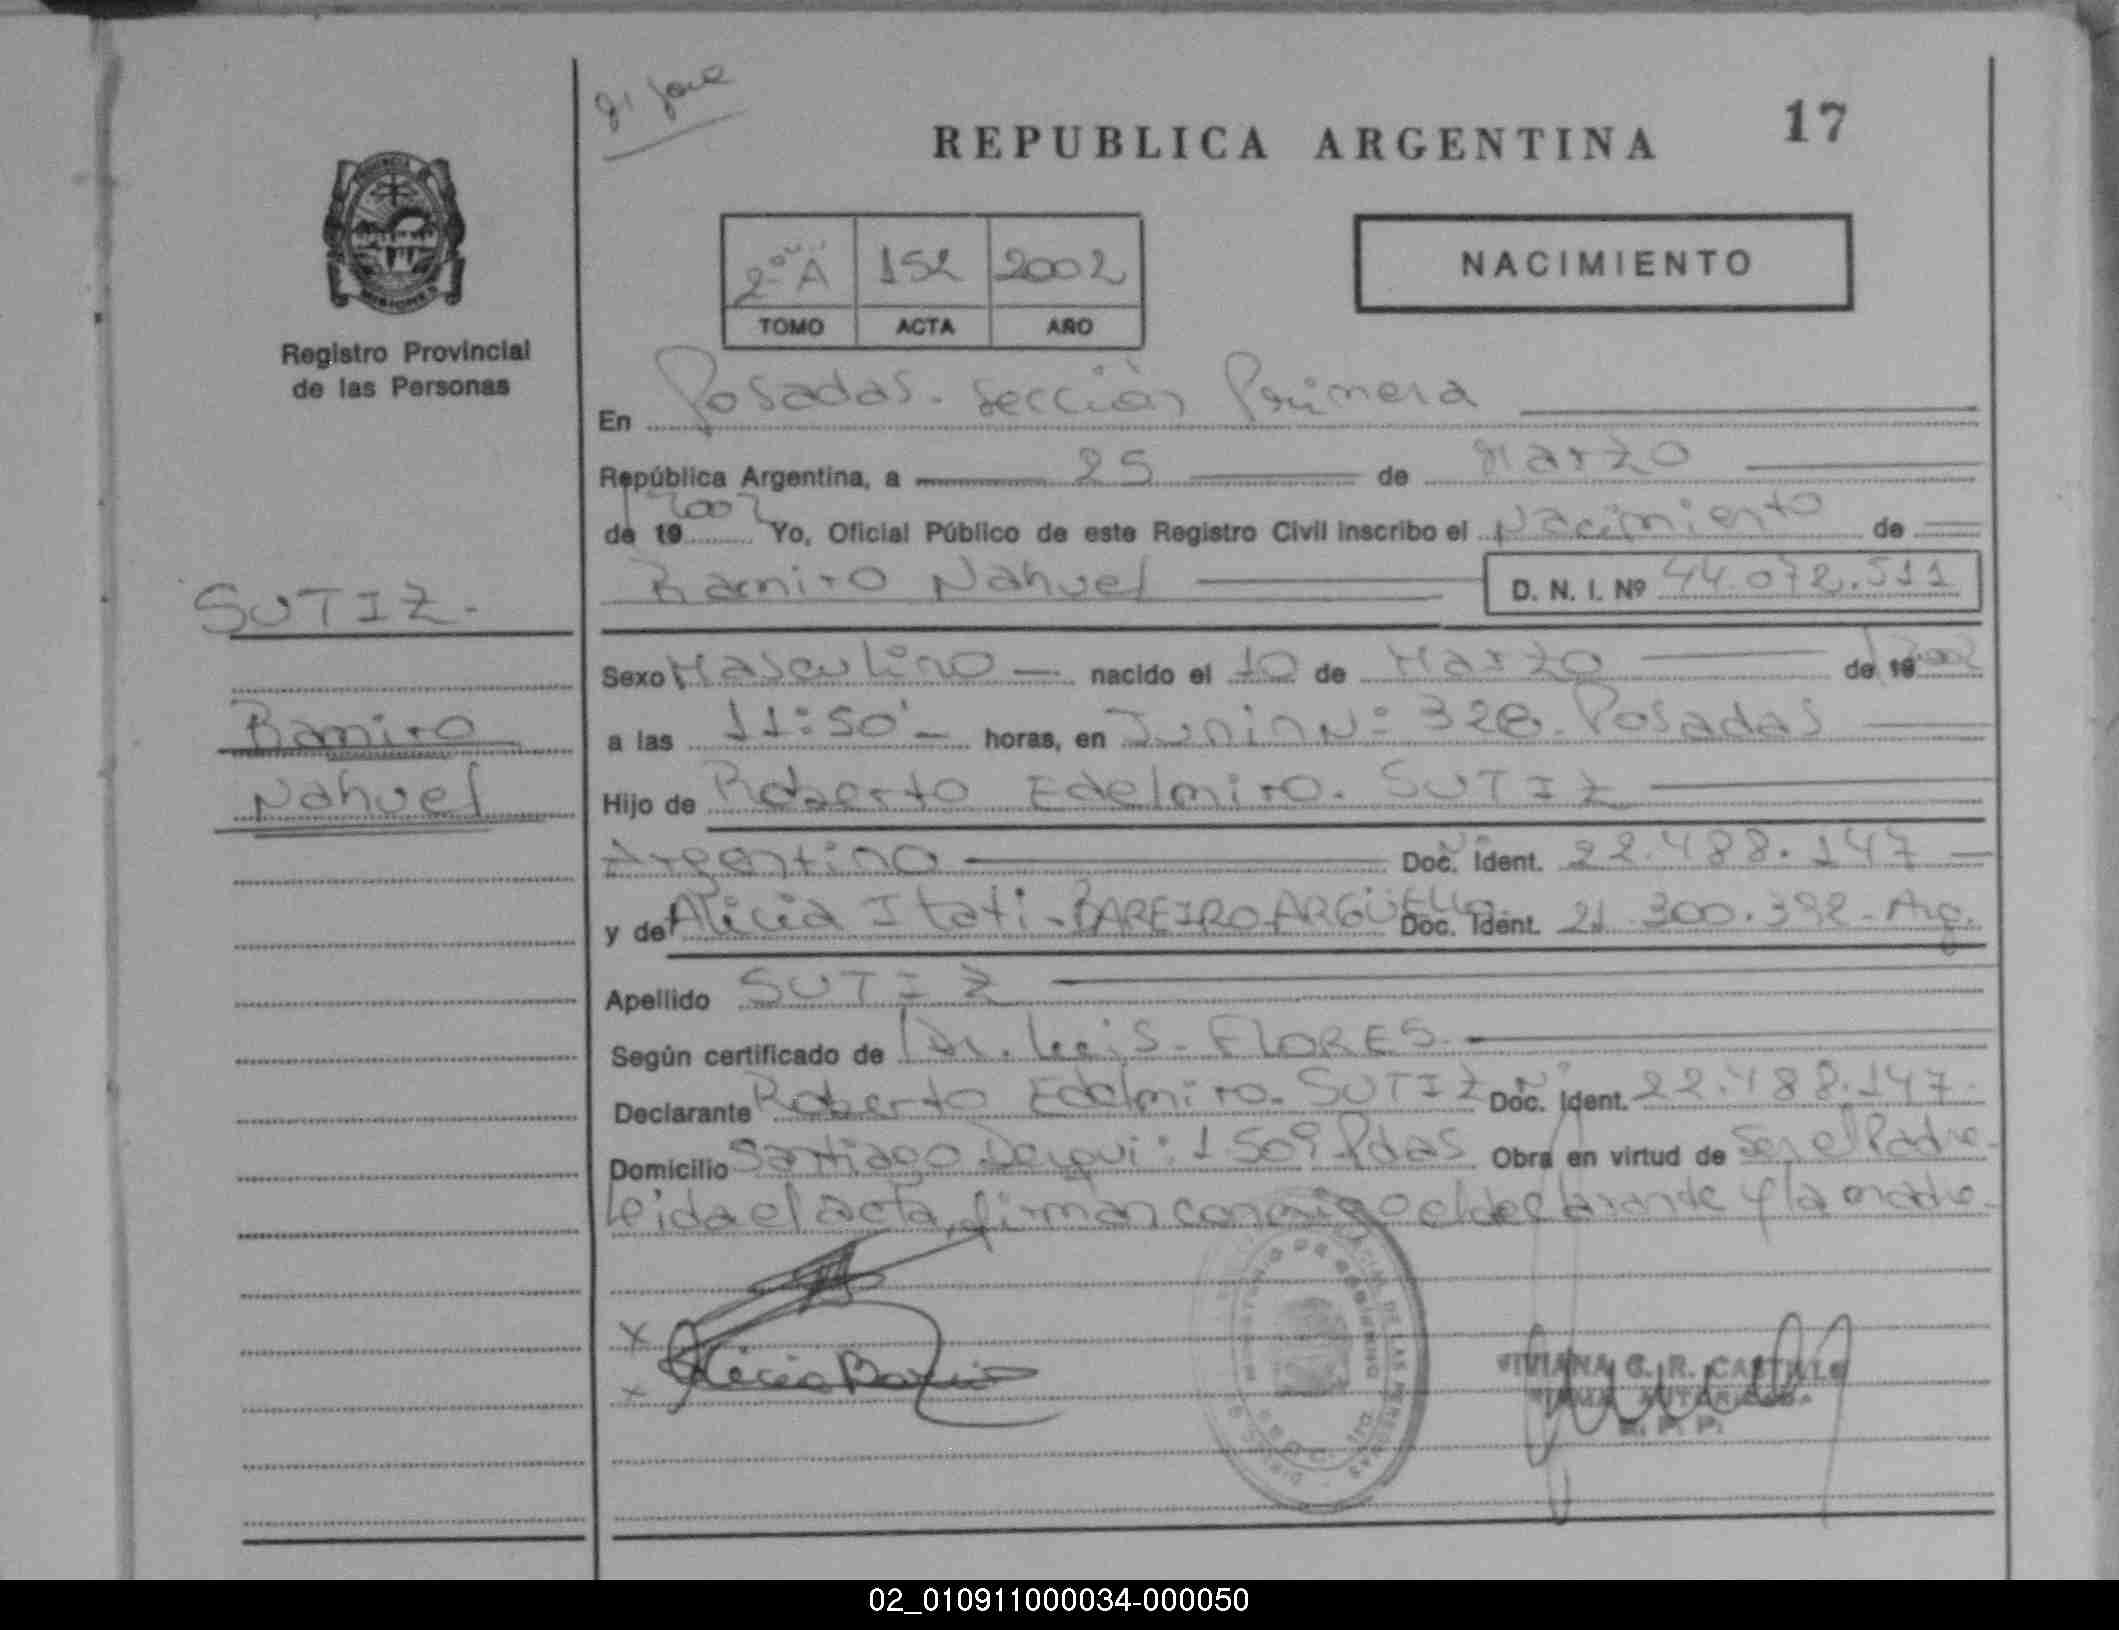 17
REPUBLICA ARGENTINA
NACIMIENTO
2º A 152 2002
TOMO ACTA AÑO
Registro Provincial
de las Personas
En Posadas. Sección Primera
República Argentina, a 25 de Marzo
de 19 2002 Yo, Oficial Público de este Registro Civil inscribo el Nacimiento de
Ramiro Nahuel D. N. I. Nº 44.072.511
SUTIZ.
Ramiro
Nahuel
Sexo Masculino nacido el 10 de Marzo de 19 2002
a las 11:50' horas, en Junin Nº 328. Posadas
Hijo de Roberto Edelmiro. SUTIZ
Argentino Doc. Ident. 22.488.147
y de Alicia Itati - BAREIRO ARGÜELLO Doc. Ident. 21.300.392 - Arg.
Apellido SUTIZ
Según certificado de Dr. Luis - FLORES.
Declarante Roberto Edelmiro. SUTIZ Doc. Ident. 22.488.147.
Domicilio Santiago Derqui: 1509 Pdas Obra en virtud de Ser el Padre.
Leida el acta, firman conmigo el declarante y la madre.
x
x
VIVIANA G. R. CASTILLO
FIRMA AUTORIZADA
R. P. P.
02_010911000034-000050